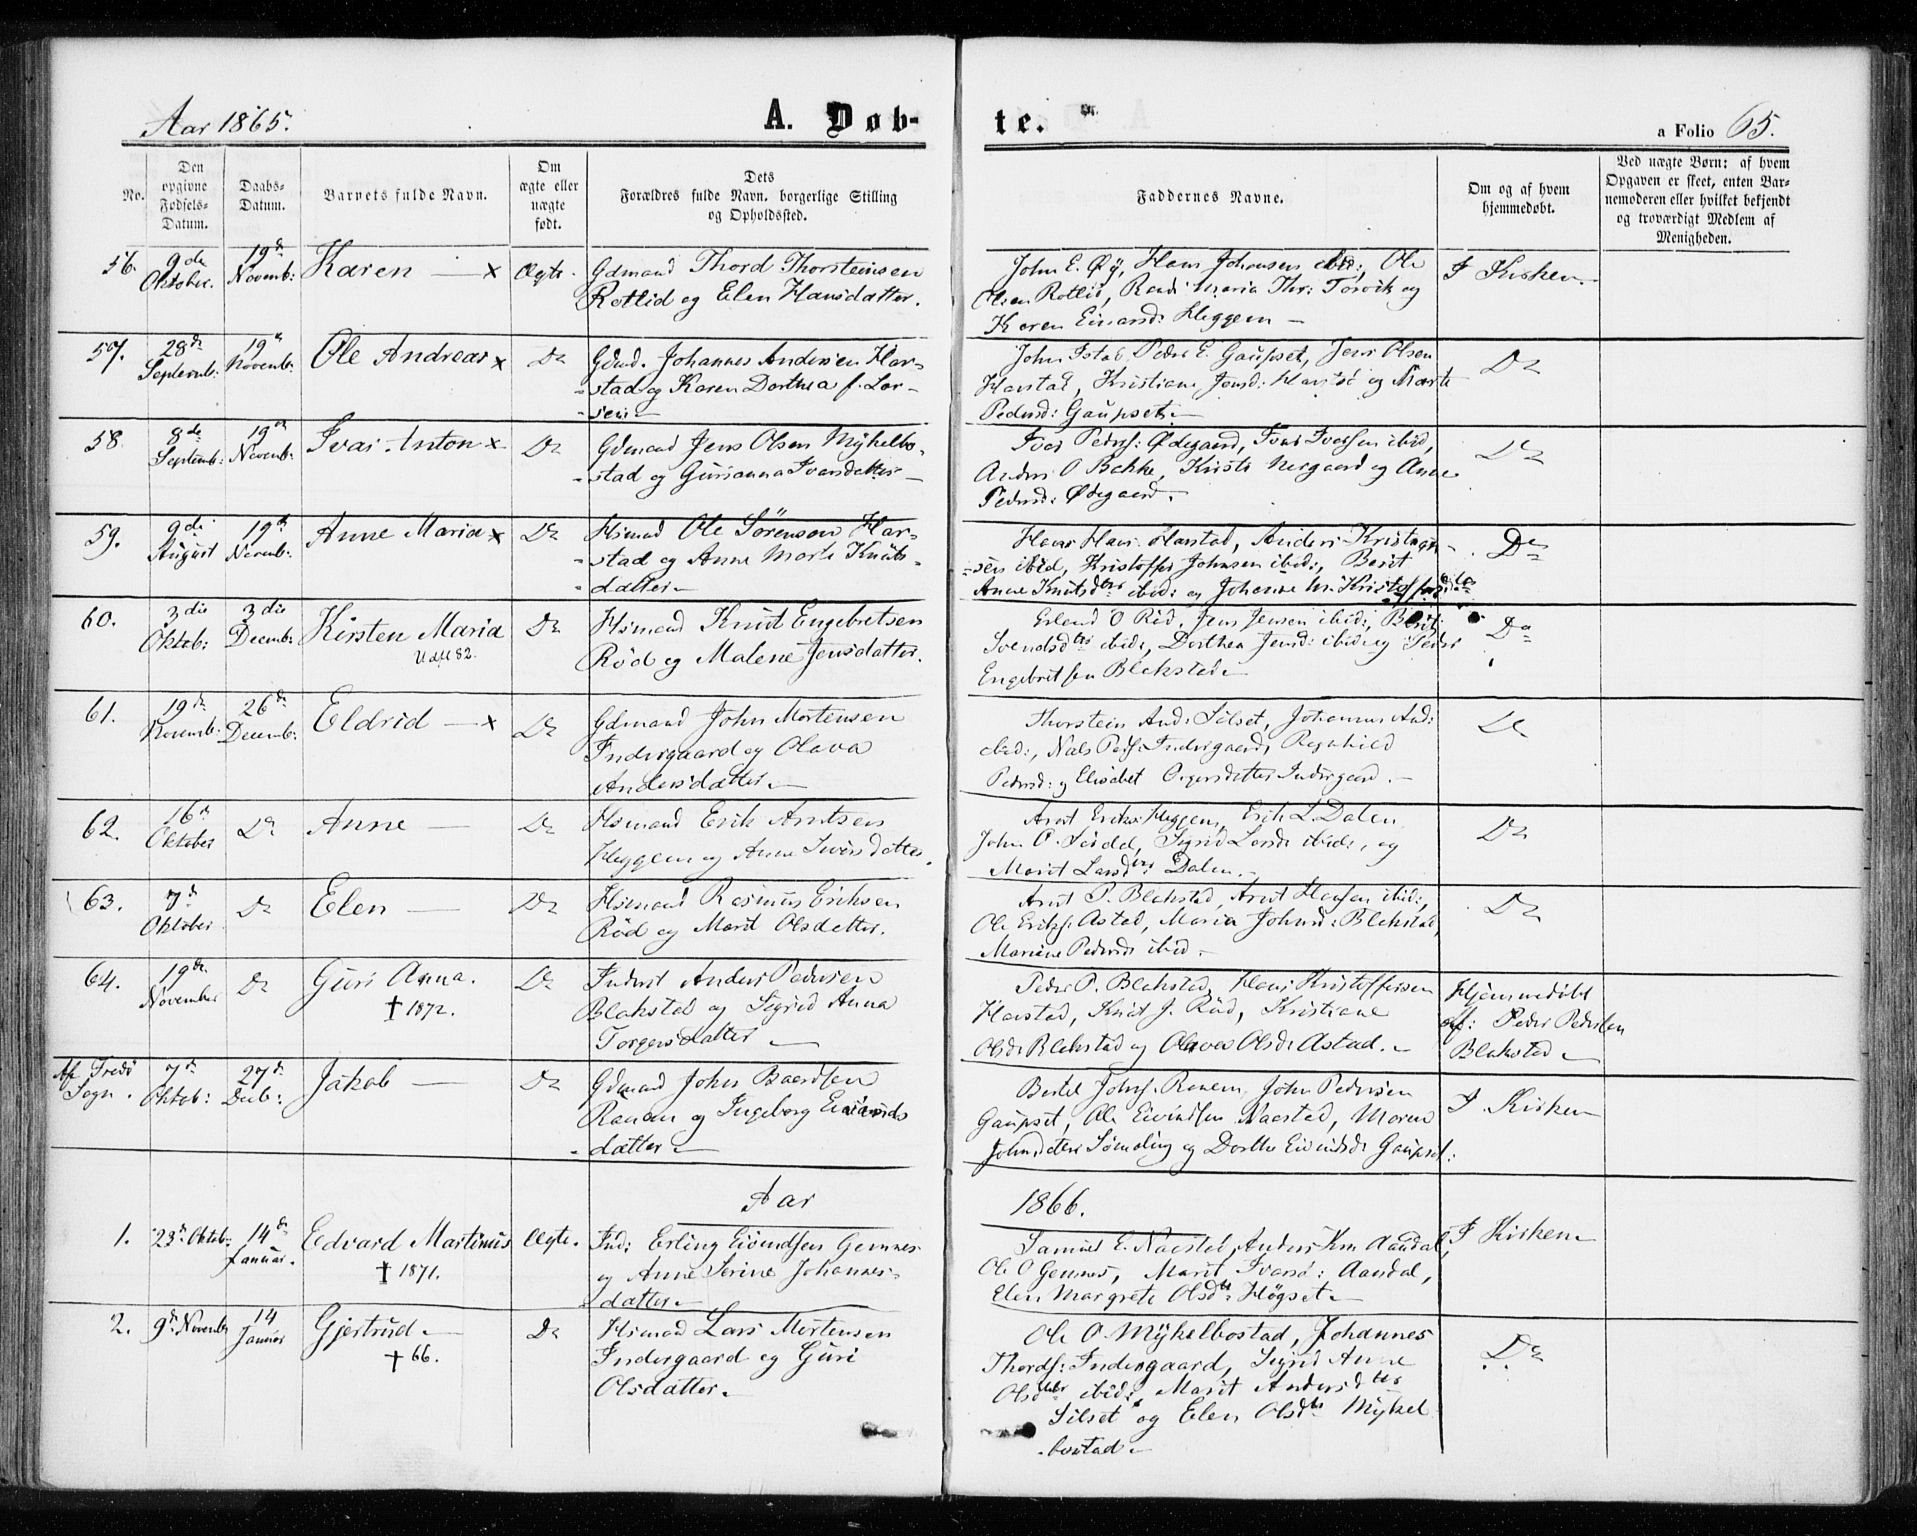 Aar 1865.
A. Døb-
te.
a Folio 65.
No.
Den opgivne Fødsels-Datum.
Daabs-Datum.
Barnets fulde Navn.
Om ægte eller uægte født.
Dets Forældres fulde Navn, borgerlige Stilling og Opholdssted.
Faddernes Navne.
Om og af hvem hjemmedøbt.
Ved uægte Børn: af hvem Opgaven er skeet, enten Bar-nemoderen eller hvilket bekjendt og troværdigt Medlem af Menigheden.
56. 9de Oktober. 19de Novemb: Karen — x Ægte.
Gdmand Thord Thorsteinsen
Rotlid og Elen Hansdatter.
John E. Øy, Hans Johansen ibid:, Ole
Olsen Rotlid, Maria Thr: Torvik og
Karen Einarsd: Heggem —
I Kirken
57. 28de Septemb: 19de Novemb: Ole Andreas x Do
Gdmd. Johannes Andersen Har-
-stad og Karen Dorthea f. Lar-
-sen
John Istad, Peder E. Gaupset, Jens Olsen
Harstad, Kristiane Jonsd: Harstad og Marte
Pedersd: Gaupset.
Do
58. 8de Septemb: 19de Novemb: Ivar Anton x Do
Gdmand Jens Olsen Mykelbo-
-stad og Gurianna Ivarsdatter —
Iver Peders: Ødegaard, Iver Iversen ibid,
Anders O Bakke, Kirsti Nergaard og Anne
Pedersd: Ødegaard.
Do
59. 9de August 19de Novemb: Anne Maria x Do
Hsmand Ole Sørensen Har-
-stad og Anne Marte Knuts-
-datter
Hans Hans. Harstad, Anders Kristen-
-sen ibid, Kristoffer Johnsen ibid:, Berit
Anne Knutsdtr ibid: og Johanne M. Kristoffersd:
Do
60. 3die Oktob: 3die Decemb: Kirsten Maria Do
Udfl 82.
Hsmand Knut Engebretsen
Rød og Malene Jensdatter.
Erland O Rød, Jens Jensen ibid:, Berit
Svendsdtr ibid:, Dorthea Jensd: ibid: og Peder
Engebretsen Blakstad
Do
61. 19de Novemb: 26de Decemb: Eldrid — x Do
Gdmand John Mortensen
Indergaard og Olava
Andersdatter
Thorstein And: Silset, Johannes And:
ibid:, Nils Peders: Indergaard, Ragnhild
Pedersd: og Elisabet Indergaard. —
Do
62. 16de Oktober Do Anne — Do
Hsmand Erik Arntsen
Heggem og Anne Iversdatter.
Arnt Eriks Heggem, Erik L Dalen,
John P. Sigrid Larsd: ibid:, og
Marit Larsdtr Dalen.
Do
63. 7de Oktober Do Elen — Do
Hsmand Rasmus Eriksen
Rød og Marit Olsdatter.
Arnt P. Blakstad, Arnt Hansen ibid:,
Ole Eriks: Astad, Maria Johnsd: Blakstad,
Mariene Pedersd: ibid —
Do
64. 19de November Do Guri Anna. Do
† 1872.
Inderst Anders Pedersen
Blakstad og Sigrid Anna
Torgersdatter —
Peder P. Blakstad, Hans Kristoffersen
Harstad, Knut J. Rød, Kristiane
Olsdr Blakstad og Olsdr Astad.
Hjemmedøbt
af: Peder Pedersen
Blakstad
Af Tredø Sogn. 7de Oktob: 27de Decb: Jakob — Do
Gdmand John Baardsen
Ranem og Ingeborg Eivinds
-datter
Bertel Johns: Ranem, John Pedersen
Gaupset, Ole Eivindsen Naastad, Maren
Johnsdatter Sømoling og Dorthe Eivindsdr Gaupset:
I Kirken
Aar
1866.
1. 23de Oktob: 14de Januar. Edvard Martinus Ægte.
† 1871.
Ind: Erling Eivindsen Gemnes
og Anne Serine Johannes-
datter
Samuel E. Naastad, Anders Km Aandal,
Ole O Gemnes, Marit Ivarsd: Aandal,
Elen Margrete Olsdtr Høgset
I Kirken
2. 9de November 14 Januar Gjertrud — Do
† 66.
Hsmand Lars Mortensen
Indergaard og Guri
Olsdatter
Ole O Mykelbostad, Johannes
Thords: Indergaard, Sigrid Anne
Olsdtr ibid:, Marit Andersdtr
Silset og Elen Olsdtr Mykel
-bostad
Do